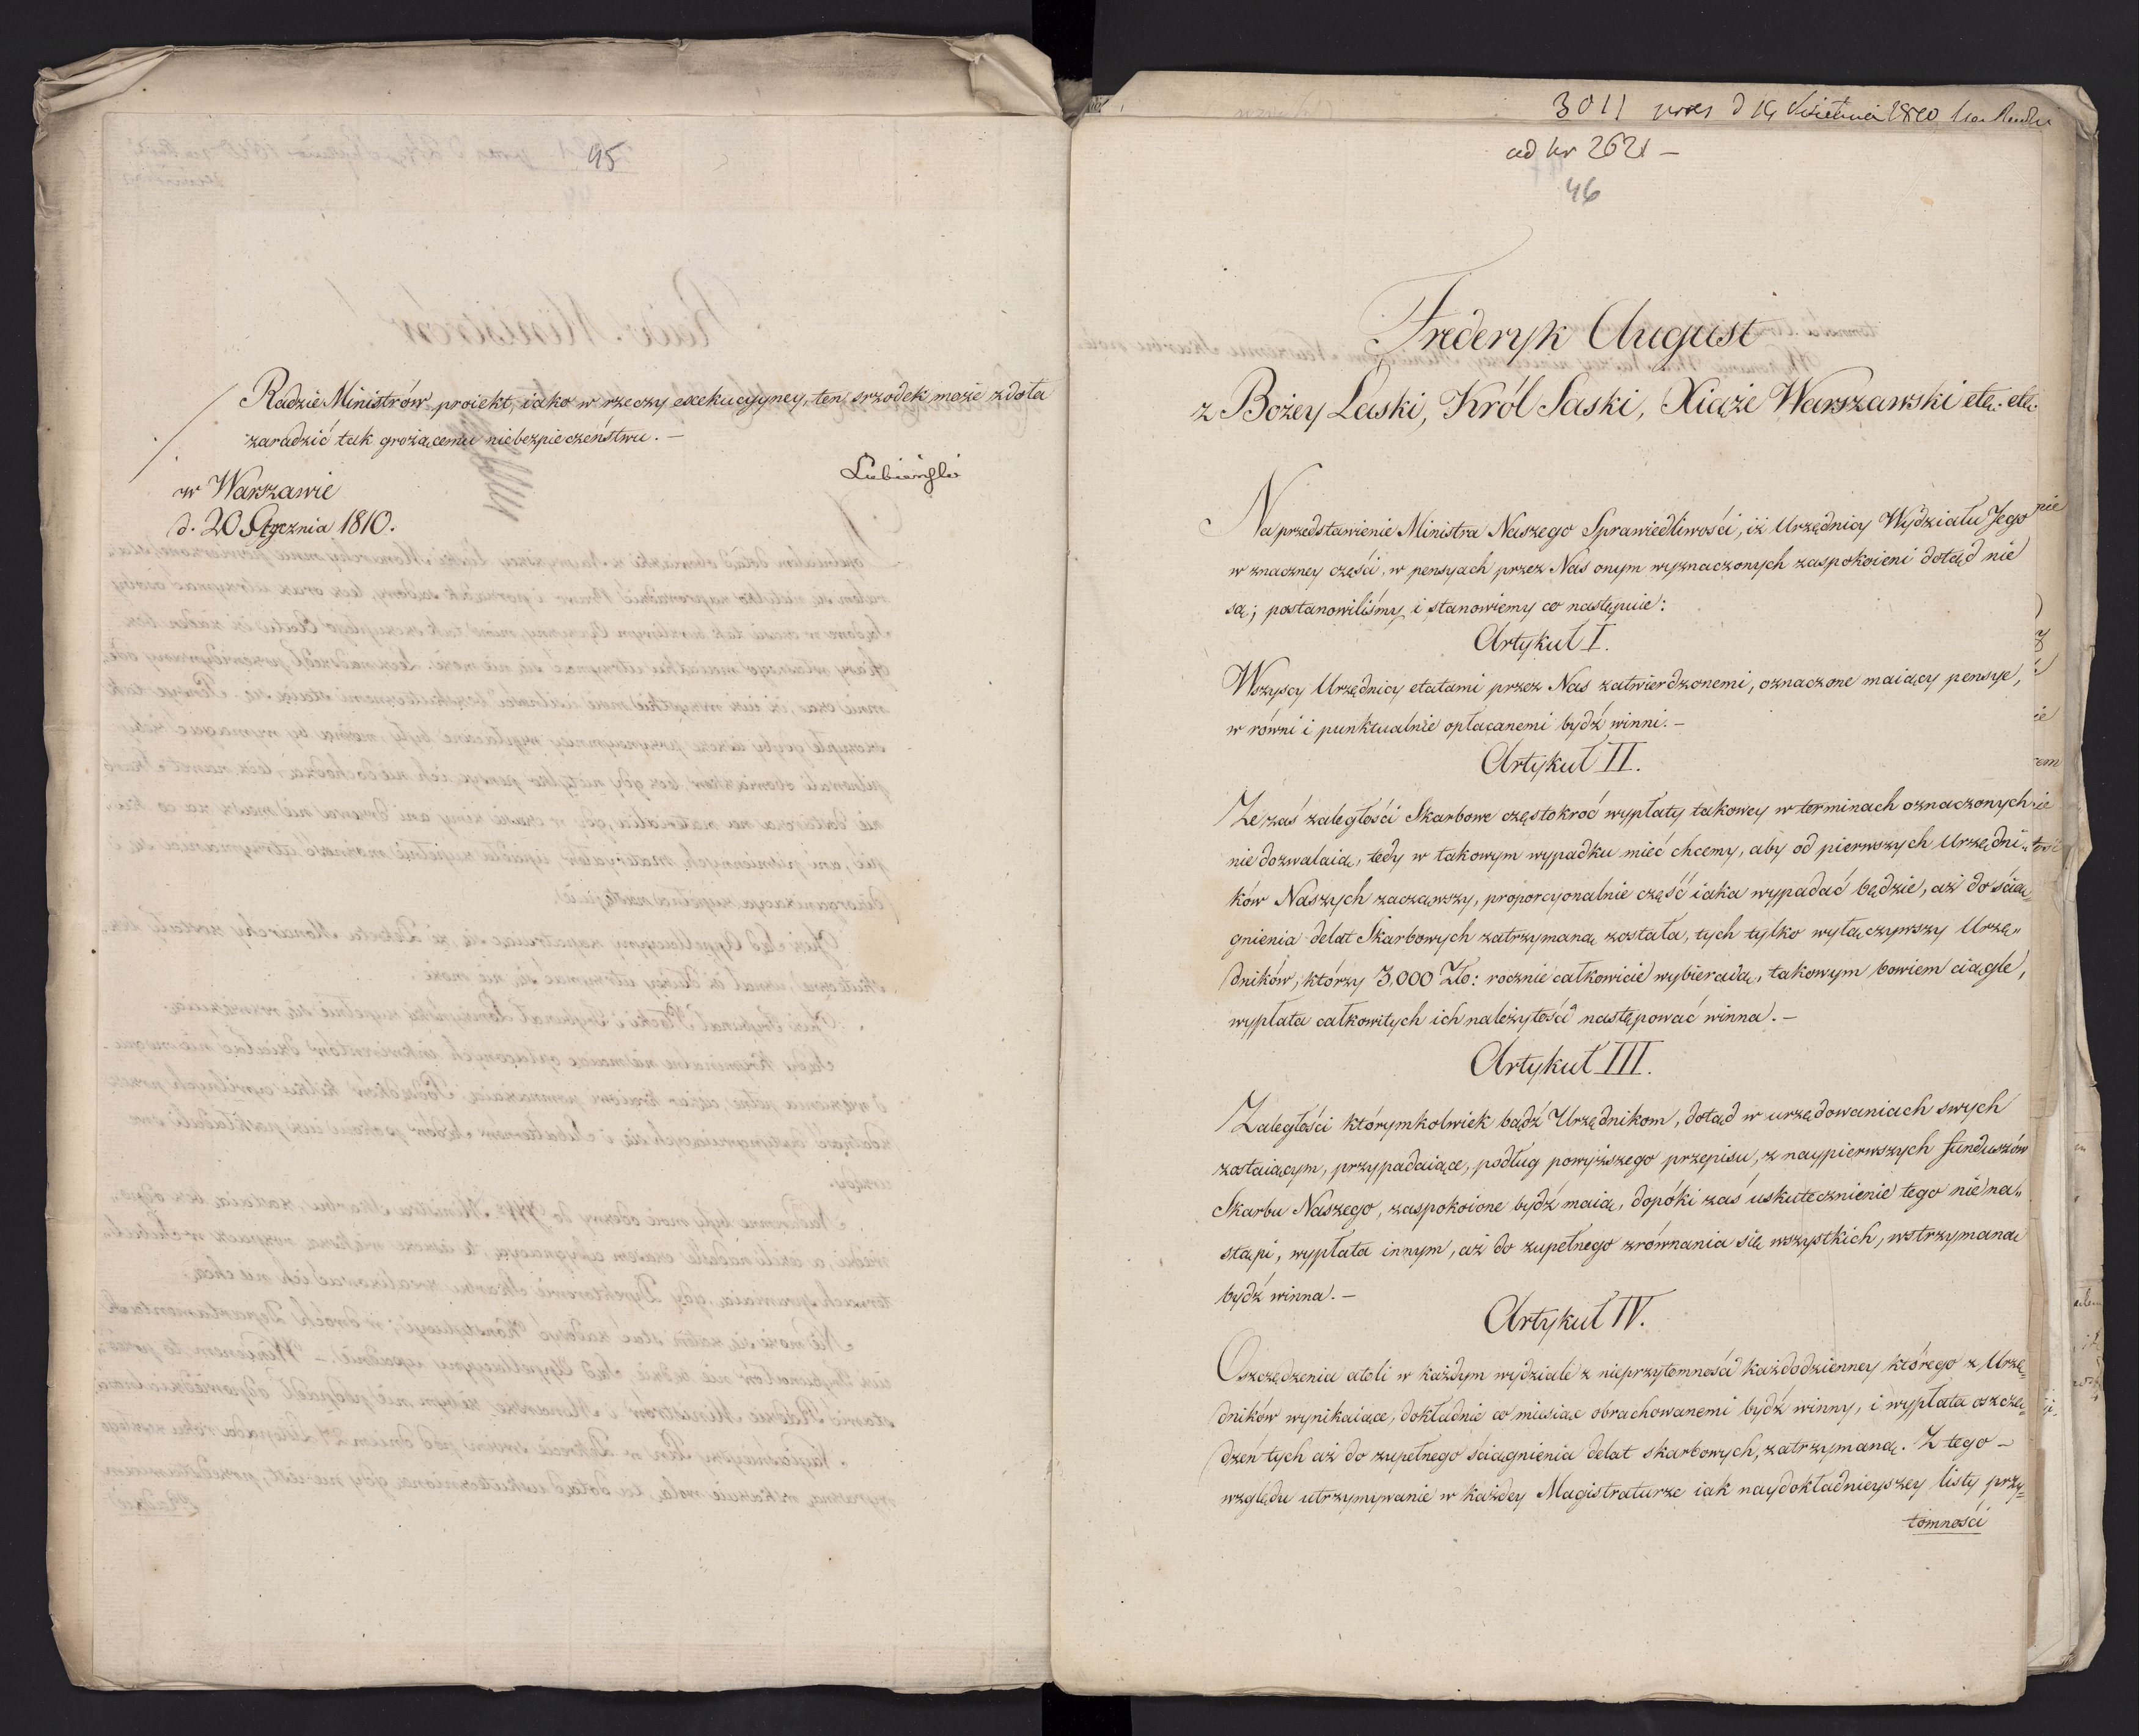 45
Radzie Ministrów proiekt, iako w rzeczy exekucyyney, ten srzodek może zdoła
zaradzić tak grożącemu niebezpieczeństwu. —
Lubieński
w Warszawie
d. 20 Stycznia 1810.
3011 pres d 14 Kwietnia 1810
ad Nr 2621 —
46
Frederyk August
z Bożey Łaski, Król Saski, Xiąże Warszawski etc. etc.
Na przedstawienie Ministra Naszego Sprawiedliwości, iż Urzędnicy Wydziału Jego
w znaczney części, w pensyach przez Nas onym wyznaczonych zaspokoieni dotąd nie
są; postanowiliśmy i stanowiemy co następuie:
Artykuł I.
Wszyscy Urzędnicy etatami przez Nas zatwierdzonemi, oznaczone maiący pensye,
w równi i punktualnie opłacanemi bydź winni. —
Artykuł II.
Że zaś zaległości Skarbowe częstokroć wypłaty takowey w terminach oznaczonych
nie dozwalaią, tedy w takowym wypadku mieć chcemy, aby od pierwszych Urzędni„
ków Naszych zacząwszy, proporcyonalnie część iaka wypadać będzie, aż do ścią„
gnienia delat Skarbowych zatrzymaną została, tych tylko wyłączywszy Urzę„
dników, którzy 3,000 Zło: rocznie całkowicie wybieraią, takowym bowiem ciągle,
wypłata całkowitych ich należytości następować winna. —
Artykuł III.
Zaległości którymkolwiek bądź Urzędnikom, dotąd w urzędowaniach swych
zostaiącym, przypadaiące, podług powyższego przepisu, z naypierwszych funduszów
Skarbu Naszego, zaspokoione bydź maią, dopóki zaś uskutecznienie tego nie na„
stąpi, wypłata innym, aż do zupełnego zrównania się wszystkich, wstrzymaną
bydź winna. —
Artykuł IV.
Oszczędzenia atoli w każdym wydziale z nieprzytomności każdodzienney którego z Urzę„
dników wynikaiące, dokładnie co miesiąc obrachowanemi bydź winny, i wypłata oszczę„
dzeń tych aż do zupełnego ściągnienia delat skarbowych, zatrzymaną. Z tego —
względu utrzymywanie w każdey Magistraturze iak naydokładnieyszey listy przy„
tomności